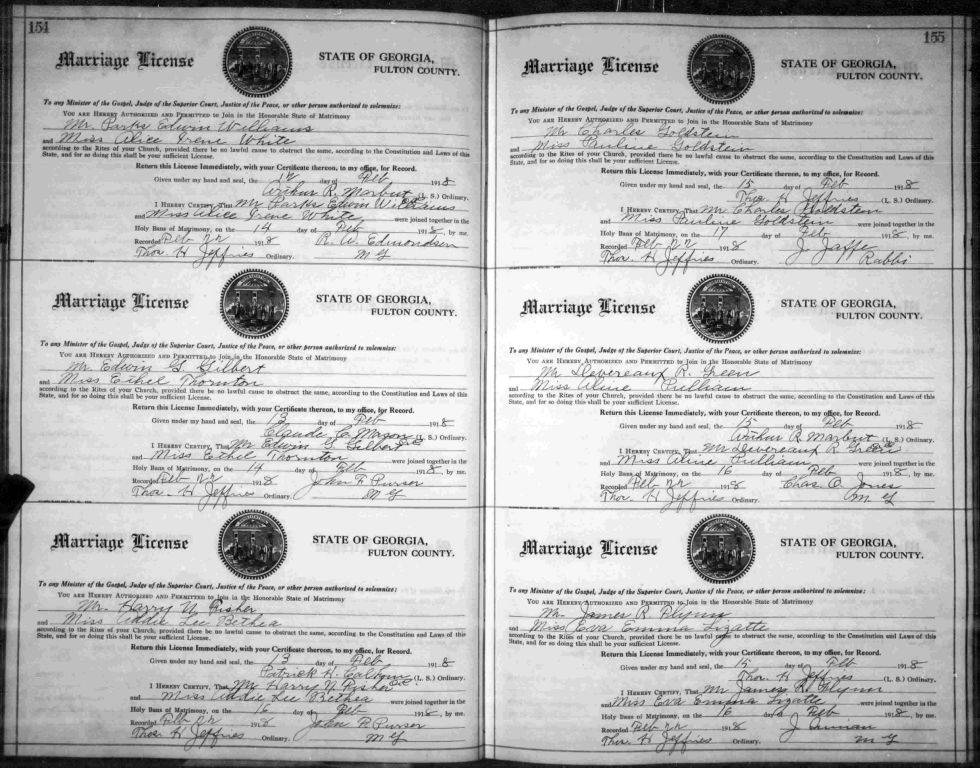 154
Marriage License
STATE OF GEORGIA,
FULTON COUNTY.
To any Minister of the Gospel, Judge of the Superior Court, Justice of the Peace, or other person authorized to solemnize:
YOU ARE HEREBY AUTHORIZED AND PERMITTED to Join in the Honorable State of Matrimony
Mr. Parks Edwin Williams
and Miss Alice Irene White
according to the Rites of your Church, provided there be no lawful cause to obstruct the same, according to the Constitution and Laws of this
State, and for so doing this shall be your sufficient License.
Return this License Immediately, with your Certificate thereon, to my office, for Record.
Given under my hand and seal, the 12 day of Feb 1918
Wilbur R. Marbut (L. S.) Ordinary.
I HEREBY CERTIFY, That Mr Parks Edwin Williams
and Miss Alice Irene White were joined together in the
Holy Bans of Matrimony, on the 14 day of Feb 1918, by me.
Recorded Feb 22 1918 R. W. Edmondson
Thos. H Jeffries Ordinary. M G
Marriage License
STATE OF GEORGIA,
FULTON COUNTY.
To any Minister of the Gospel, Judge of the Superior Court, Justice of the Peace, or other person authorized to solemnize:
YOU ARE HEREBY AUTHORIZED AND PERMITTED to Join in the Honorable State of Matrimony
Mr Edwin G. Gilbert
and Miss Ethel Thornton
according to the Rites of your Church, provided there be no lawful cause to obstruct the same, according to the Constitution and Laws of this
State, and for so doing this shall be your sufficient License.
Return this License Immediately, with your Certificate thereon, to my office, for Record.
Given under my hand and seal, the 13 day of Feb 1918
Claude C. Mason (L. S.) Ordinary.
I HEREBY CERTIFY, That Mr Edwin G Gilbert
and Miss Ethel Thornton were joined together in the
Holy Bans of Matrimony, on the 14 day of Feb 1918, by me.
Recorded Feb 22 1918 John F. Purser
Thos. H Jeffries Ordinary. M G
Marriage License
STATE OF GEORGIA,
FULTON COUNTY.
To any Minister of the Gospel, Judge of the Superior Court, Justice of the Peace, or other person authorized to solemnize:
YOU ARE HEREBY AUTHORIZED AND PERMITTED to Join in the Honorable State of Matrimony
Mr. Harry N Fisher
and Miss Addie Lee Bethea
according to the Rites of your Church, provided there be no lawful cause to obstruct the same, according to the Constitution and Laws of this
State, and for so doing this shall be your sufficient License.
Return this License Immediately, with your Certificate thereon, to my office, for Record.
Given under my hand and seal, the 13 day of Feb 1918
Patrick H. Calhoun (L. S.) Ordinary.
I HEREBY CERTIFY, That Mr Harry N Fisher
and Miss Addie Lee Bethea were joined together in the
Holy Bans of Matrimony, on the 16 day of Feb 1918, by me.
Recorded Feb 22 1918 John F. Purser
Thos H Jeffries Ordinary. M G
155
Marriage License
STATE OF GEORGIA,
FULTON COUNTY.
To any Minister of the Gospel, Judge of the Superior Court, Justice of the Peace, or other person authorized to solemnize:
YOU ARE HEREBY AUTHORIZED AND PERMITTED to Join in the Honorable State of Matrimony
Mr Charles Goldstein
and Miss Pauline Goldstein
according to the Rites of your Church, provided there be no lawful cause to obstruct the same, according to the Constitution and Laws of this
State, and for so doing this shall be your sufficient License.
Return this License Immediately, with your Certificate thereon, to my office, for Record.
Given under my hand and seal, the 15 day of Feb 1918
Thos. H Jeffries (L. S.) Ordinary.
I HEREBY CERTIFY, That Mr Charles Goldstein
and Miss Pauline Goldstein were joined together in the
Holy Bans of Matrimony, on the 17 day of Feb 1918, by me.
Recorded Feb 22 1918 J. Jaffe
Thos. H Jeffries Ordinary. Rabbi
Marriage License
STATE OF GEORGIA,
FULTON COUNTY.
To any Minister of the Gospel, Judge of the Superior Court, Justice of the Peace, or other person authorized to solemnize:
YOU ARE HEREBY AUTHORIZED AND PERMITTED to Join in the Honorable State of Matrimony
Mr Devereaux R. Green
and Miss Aline Pulliam
according to the Rites of your Church, provided there be no lawful cause to obstruct the same, according to the Constitution and Laws of this
State, and for so doing this shall be your sufficient License.
Return this License Immediately, with your Certificate thereon, to my office, for Record.
Given under my hand and seal, the 15 day of Feb 1918
Wilbur R Marbut (L. S.) Ordinary.
I HEREBY CERTIFY, That Mr Devereaux R Green
and Miss Aline Pulliam were joined together in the
Holy Bans of Matrimony, on the 16 day of Feb 1918, by me.
Recorded Feb 22 1918 Chas. O. Jones
Thos. H Jeffries Ordinary. M G
Marriage License
STATE OF GEORGIA,
FULTON COUNTY.
To any Minister of the Gospel, Judge of the Superior Court, Justice of the Peace, or other person authorized to solemnize:
YOU ARE HEREBY AUTHORIZED AND PERMITTED to Join in the Honorable State of Matrimony
Mr. James R Flynn
and Miss Eva Emma
according to the Rites of your Church, provided there be no lawful cause to obstruct the same, according to the Constitution and Laws of this
State, and for so doing this shall be your sufficient License.
Return this License Immediately, with your Certificate thereon, to my office, for Record.
Given under my hand and seal, the 15 day of Feb 1918
Thos. H Jeffries (L. S.) Ordinary.
I HEREBY CERTIFY, That Mr James R. Flynn
and Miss Eva Emma were joined together in the
Holy Bans of Matrimony, on the 16 day of Feb 1918, by me.
Recorded Feb 22 1918 J
Thos. H Jeffries Ordinary. M G